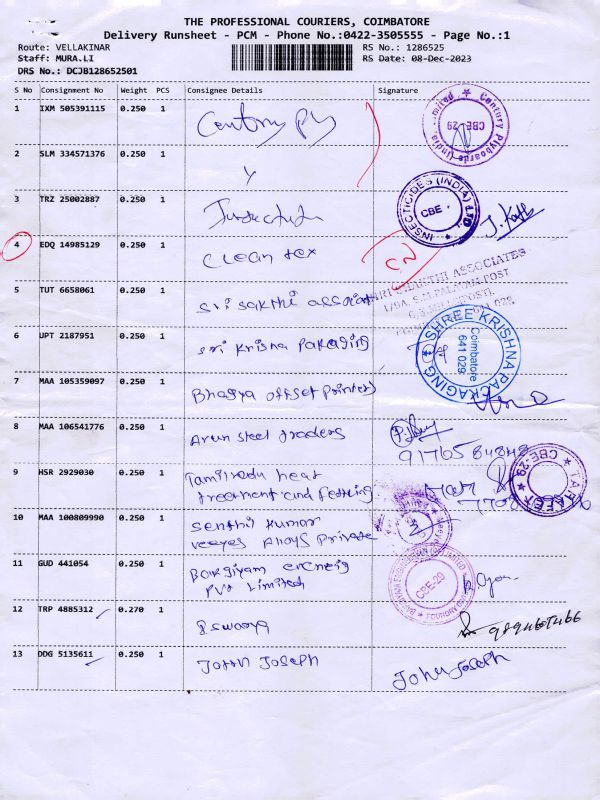 THE PROFESSIONAL COURIERS, COIMBATORE
Delivery Runsheet - PCM - Phone No.:0422-3505555 - Page No.:1
Route: VELLAKINAR RS No.: 1286525
Staff: MURA.LI RS Date: 08-Dec-2023
DRS No.: DCJB128652501
S No Consignment No Weight PCS Consignee Details Signature
1 IXM 505391115 0.250 1 Century Ply
Century Plyboards (India) Limited CBE-29
2 SLM 334571376 0.250 1 y
3 TRZ 25002887 0.250 1
INSECTICIDES (INDIA) LTD CBE
4 EDQ 14985129 0.250 1 Clean tex
5 TUT 6658061 0.250 1 Sri Sakthi
SHAKTHI ASSOCIATES
6 UPT 2187951 0.250 1 Sri Krisna Pakaging
SHREE KRISHNA PACKAGING Coimbatore 641 029
7 MAA 105359097 0.250 1 Bhagya offset Printers
8 MAA 106541776 0.250 1 Arun Steel traders
9 HSR 2929030 0.250 1 Tamilnadu heat
treatment and
CBE-29
10 MAA 100809990 0.250 1 Senthil Kumar
Veeyes Alloys Private
11 GUD 441054 0.250 1
Pvt Limited
CBE-29
12 TRP 4885312 0.270 1
13 DDG 5135611 0.250 1 John Joseph John Joseph